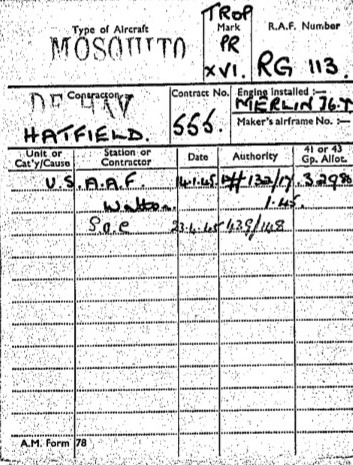 TROP
Type of Aircraft Mark R.A.F. Number
MOSQUITO PR
XVI. RG 113.
Contractor Contract No. Engine installed :—
DE HAV MERLIN 76.T
HATFIELD. 555. Maker's airframe No. :—
Unit or Cat'y/Cause Station or Contractor Date Authority 41 or 43 Gp. Allot.
U.S.A.A.F. 14.1.45 132/17 3298
Walton 1.45.
Soc 23.4.45 439/148
A.M. Form 78